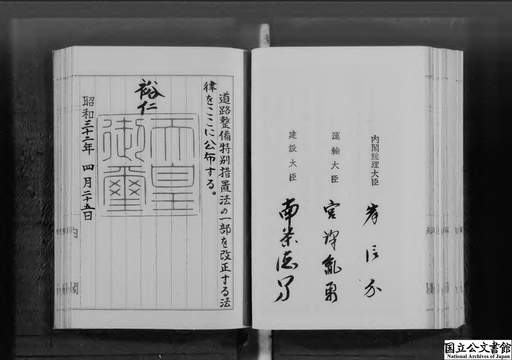 内閣総理大臣 岸信介
運輸大臣 宮澤胤勇
建設大臣 南条徳男
道路整備特別措置法の一部を改正する法
律をここに公布する。
裕仁
天皇
御璽
昭和三十二年 四月二十五日
国立公文書館
National Archives of Japan